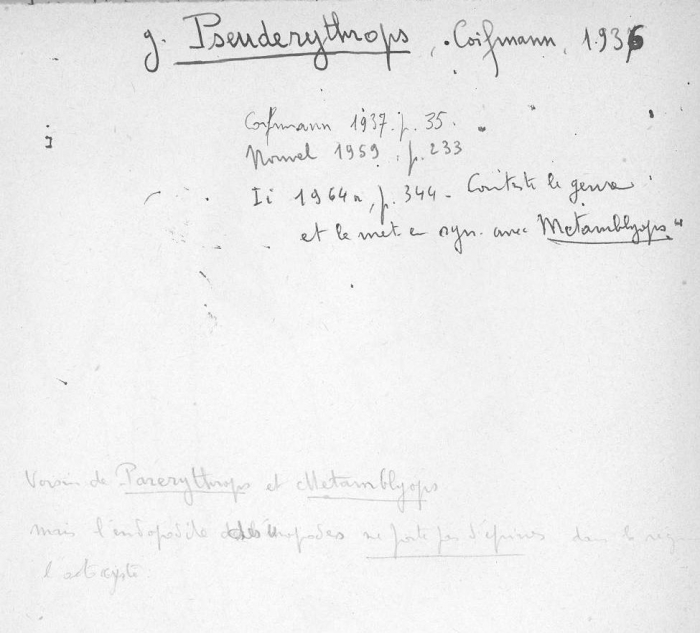 g. Pseuderythrops, Coifmann, 1936
Coifmann 1937. p. 35.
Nouvel 1959. p. 233
Ii 1964a, p. 344 - Conteste le genre
et le met en syn. avec Metamblyops"
Voisin de Parerythrops et Metamblyops
mais l'endopodite des uropodes ne porte pas d'épines dans la